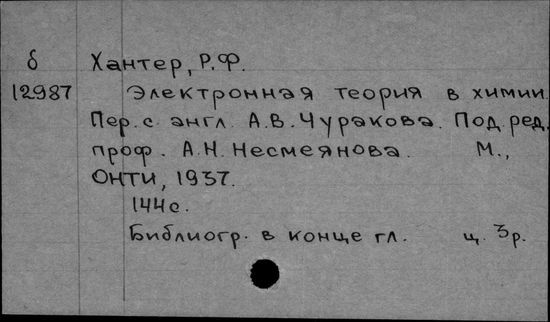 б Хантер, Р.Ф.
12987 Электронная теория в химии.
Пер. с англ. А.В. Чуракова. Под ред.
проф. А.Н. Несмеянова. М.,
ОНТИ, 1937.
144с.
Библиогр. в конце гл. ц. 3р.